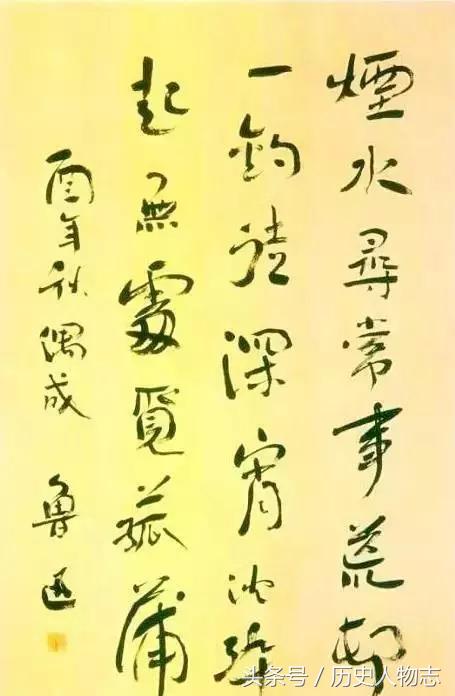 煙水尋常事荒邨
一釣徒深宵沈醉
起無處覓菰蒲
酉年秋偶成 魯迅
头条号 / 历史人物志